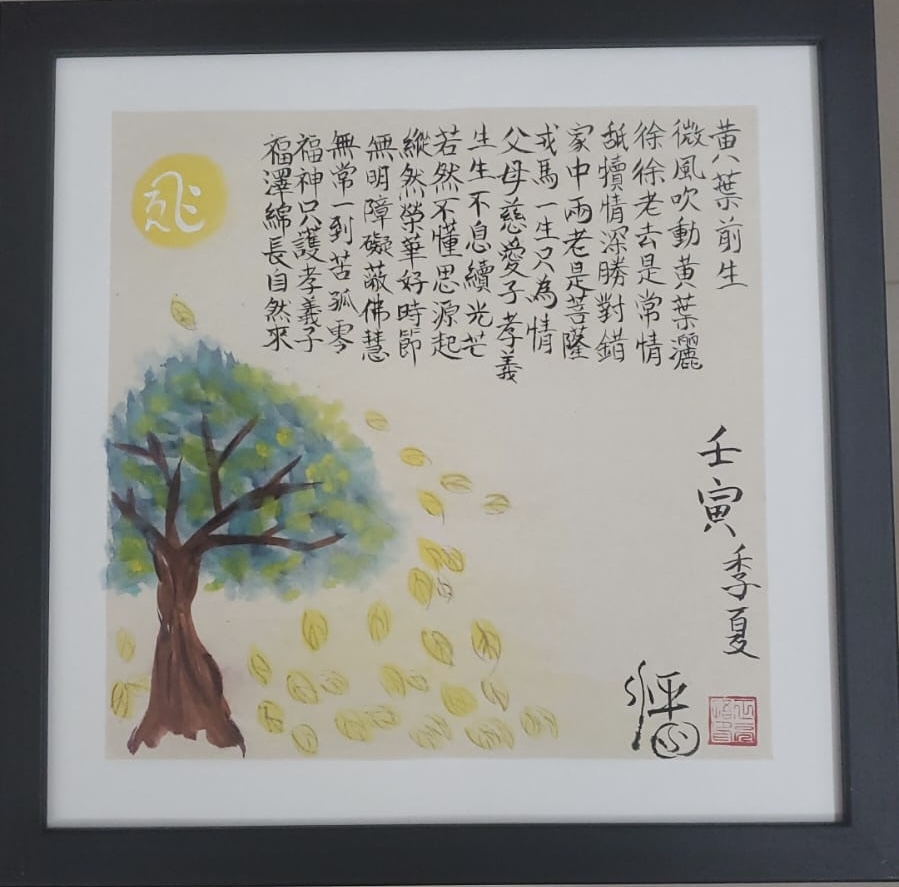 黃葉前生
微風吹動黃葉灑
徐徐老去是常情
舐犢情深勝對錯
家中兩老是菩薩
戎馬一生只為情
父母慈愛子孝義
生生不息續光芒
若然不懂思源起
縱然榮華好時節
無明障礙蔽佛慧
無常一到苦孤零
福神只護孝義子
福澤綿長自然來
壬寅季夏